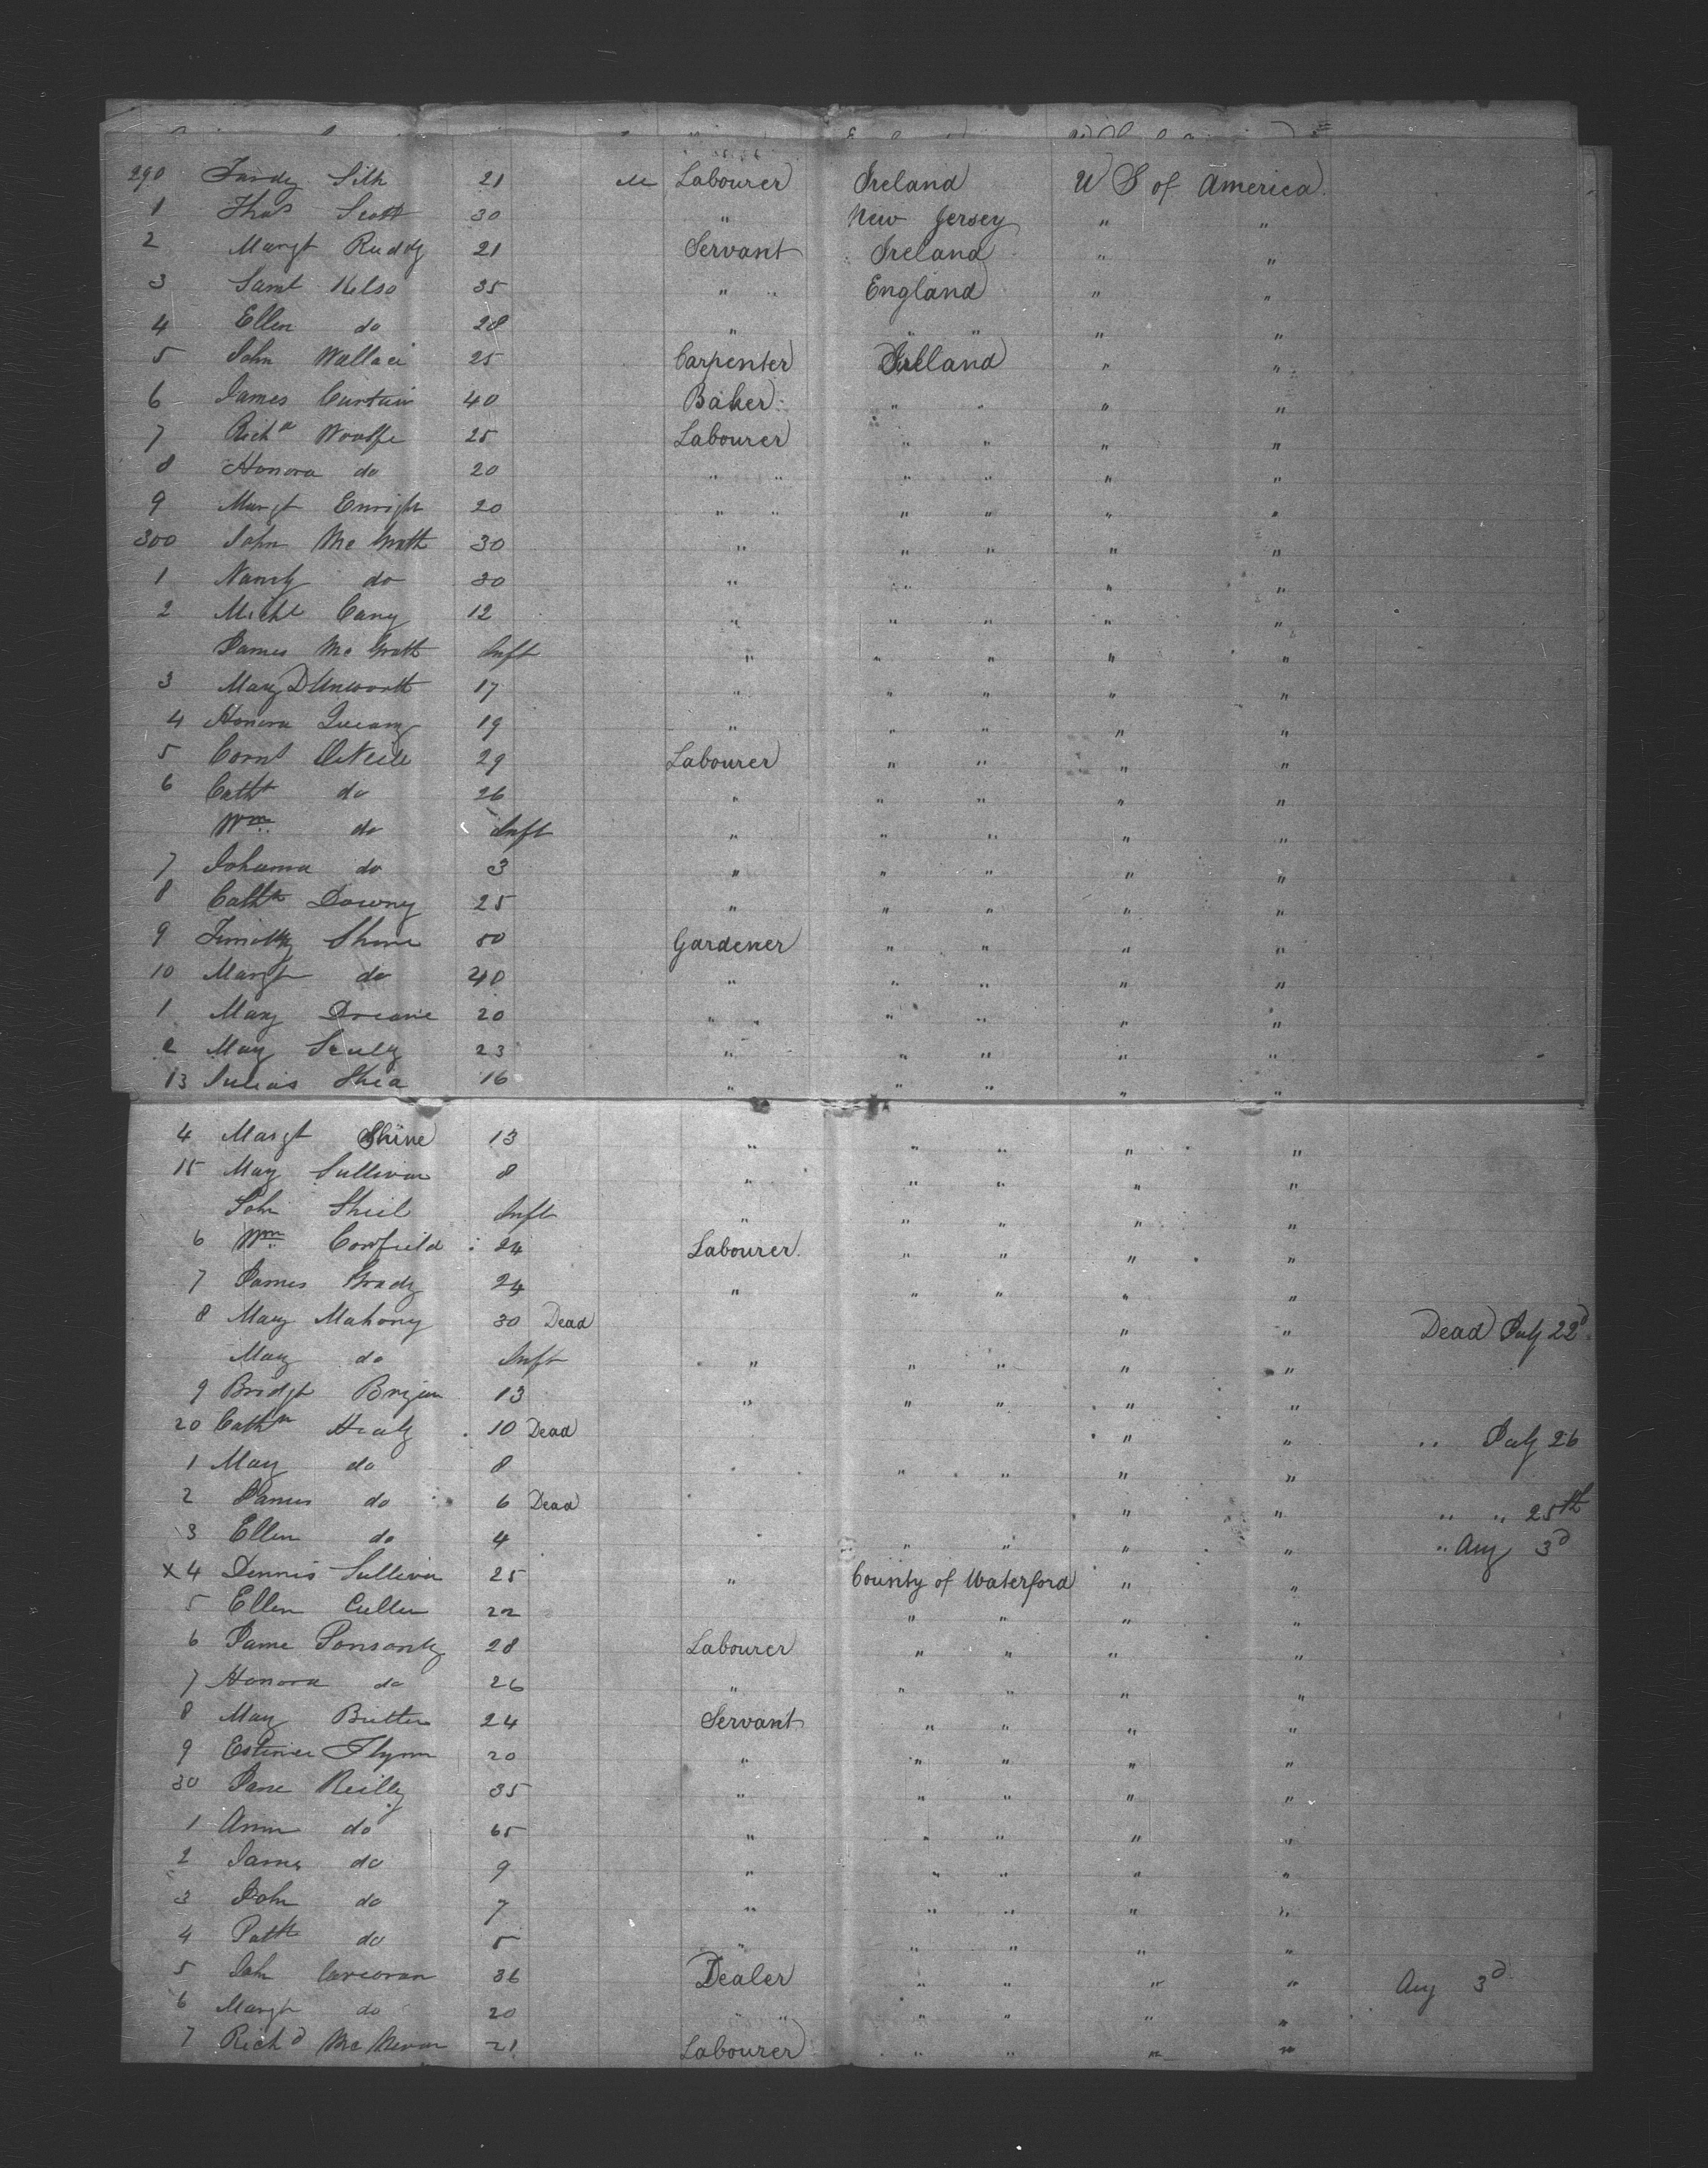 290 Silk 21 M Labourer Ireland U S of America
1 Thos Scott 30 " New Jersey " "
2 Margt Ruddy 21 Servant Ireland " "
3 Saml Kelso 35 " " England " "
4 Ellen do 28 " " " " "
5 John Wallace 25 Carpenter Ireland " "
6 James Curtain 40 Baker " " " "
7 Richd Woulfe 25 Labourer " " " "
8 Honora do 20 " " " " " "
9 Margt Enright 20 " " " " " "
300 John McGrath 30 " " " " "
1 Nancy do 30 " " " " "
2 Michl Cary 12 " " " " "
James McGrath Inft " " " " "
3 Mary DUnworth 17 " " " " "
4 Honora 19 " " " " "
5 Cornl ONeill 29 Labourer " " " "
6 Cathn do 26 " " " " "
Wm do Inft " " " " "
7 Johanna do 3 " " " " "
8 Cathn Downy 25 " " " " "
9 Timothy Shine 50 Gardener " " " "
10 Margt do 40 " " " " "
1 Mary 20 " " " " " "
2 Mary Sculy 23 " " " " "
13 Julias Shea 16 " " " " "
4 Margt Shine 13 " " " " "
15 Mary Sullivan 8 " " " " "
John Shiel Inft " " " " "
6 Wm Confield 24 Labourer " " " "
7 James Grady 24 " " " " "
8 Mary Mahony 30 Dead " " Dead July 22d
Mary do Inft " " " " "
9 Bridgt 13 " " " " "
20 Cathn Healy 10 Dead " " " July 26
1 Mary do 8 " " " "
2 James do 6 Dead " " " " 25th
3 Ellen do 4 " " " " " Aug 3d
x 4 Dennis Sullivan 25 " County of Waterford " "
5 Ellen Cullen 22 " " " "
6 Ponsonby 28 Labourer " " " "
7 Honora do 26 " " " " "
8 Mary Butler 24 Servant " " " "
9 Flynn 20 " " " " "
30 Jane Reilly 35 " " " " "
1 Ann do 65 " " " " "
2 James do 9 " " " " "
3 John do 7 " " " " "
4 Patk do 5 " " " " "
5 John Corcoran 36 Dealer " " " " Aug 3d
6 Margt do 20 " " " " " "
7 Richd 21 Labourer " " " "